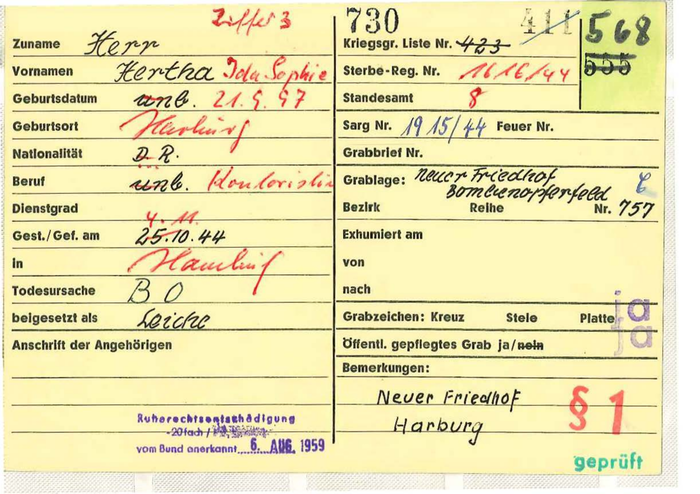 Ziffer 3
730 411 568
Zuname Herr
Kriegsgr. Liste Nr. 423
555
Vornamen Hertha Ida Sophie
Sterbe-Reg. Nr. 1616/44
Geburtsdatum unb. 21.9.97
Standesamt 8
Geburtsort Harburg
Sarg Nr. 1915/44 Feuer Nr.
Nationalität D. R.
Grabbrief Nr.
Beruf unb. Kontoristin
Grablage: Neuer Friedhof
Bombenopferfeld
Dienstgrad
Bezirk Reihe Nr. 757
4. 11.
Gest./Gef. am 25.10.44
Exhumiert am
in Hamburg
von
Todesursache B O
nach
beigesetzt als Leiche
Grabzeichen: Kreuz Stele Platte ja
Anschrift der Angehörigen
Öffentl. gepflegtes Grab ja/nein ja
Bemerkungen:
Neuer Friedhof
Harburg
§ 1
Ruherechtsentschädigung
-20fach /
vom Bund anerkannt 6. AUG. 1959
geprüft